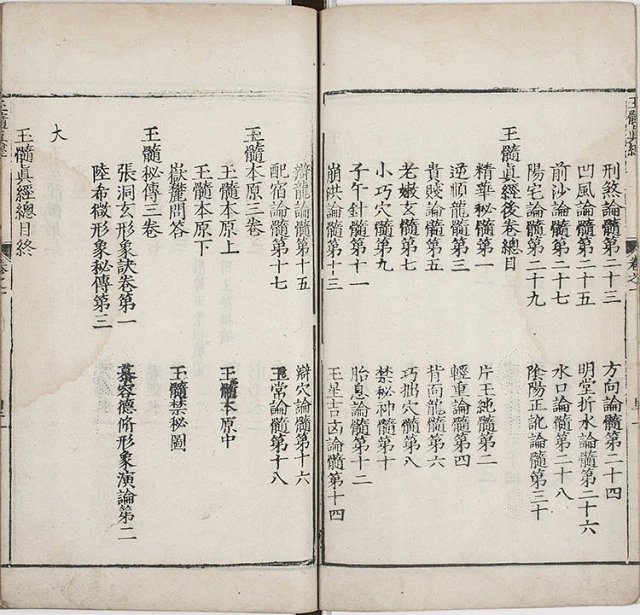 刑煞論髓第二十三
方向論髓第二十四
凹風論髓第二十五
明堂折水論髓第二十六
前沙論髓第二十七
水口論髓第二十八
陽宅論髓第二十九
陰陽正訛論髓第三十
玉髓眞經後卷總目
精華秘髓第一
片玉純髓第二
逆順龍髓第三
輕重論髓第四
貴賤論髓第五
背向龍髓第六
老嫩玄髓第七
巧拙穴髓第八
小巧穴髓第九
禁秘神髓第十
子午針髓第十一
胎息論髓第十二
崩洪論髓第十三
玉星吉凶論髓第十四
辯龍論髓第十五
辯穴論髓第十六
配宿論髓第十七
玉常論髓第十八
玉髓本原三卷
玉髓本原上
玉髓本原中
玉髓本原下
嶽麓問答
玉髓禁秘圖
玉髓秘傳三卷
張洞玄形象訣卷第一
慕容德脩形象演論第二
陸希微形象秘傳第三
大
玉髓眞經總目終